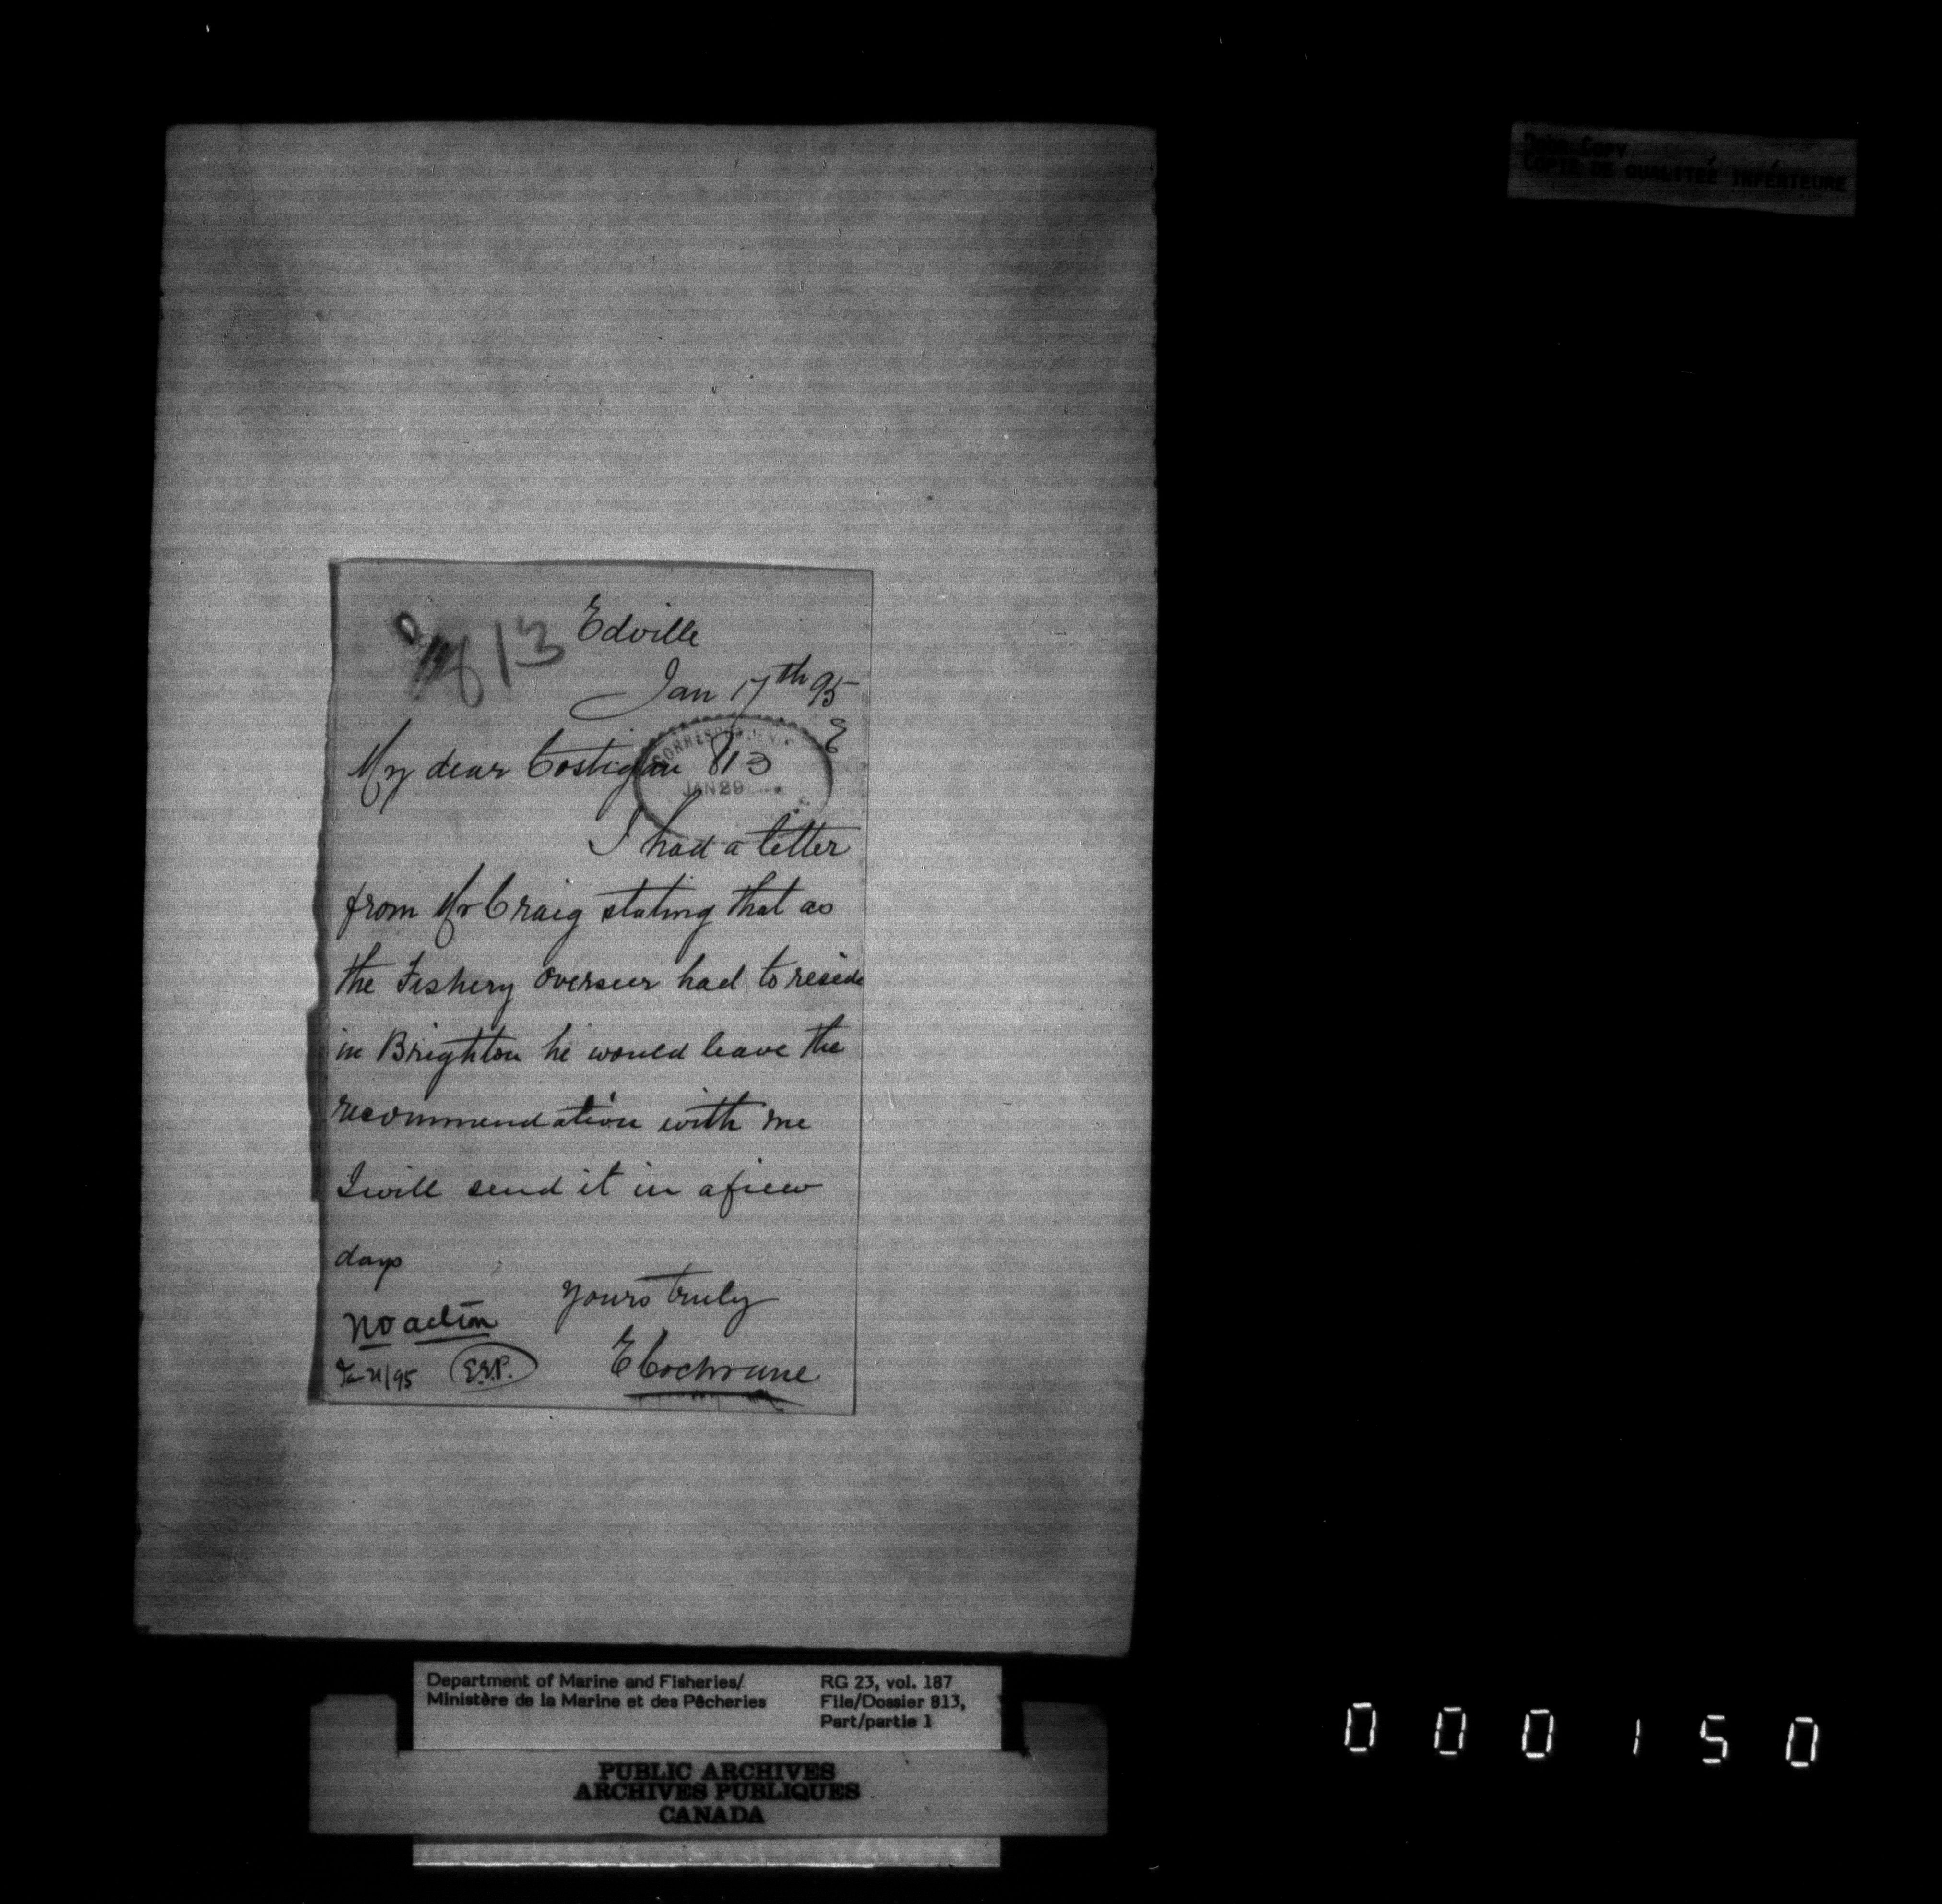 Poor Copy
COPIE DE QUALITEÉ INFÉRIEURE
813 Edville
Jan 17th 95
My dear Costigan
CORRESPONDENCE
813
JAN 29
I had a letter
from Mr Craig stating that as
the Fishery Overseer had to reside
in Brighton he would leave the
recommendation with me
I will send it in a fiew
days
Yours truly
No action
E Cochrane
Jan 21/95 E.E.P.
Department of Marine and Fisheries/ RG 23, vol. 187
Ministère de la Marine et des Pêcheries File/Dossier 813,
Part/partie 1
PUBLIC ARCHIVES
ARCHIVES PUBLIQUES
CANADA
000150